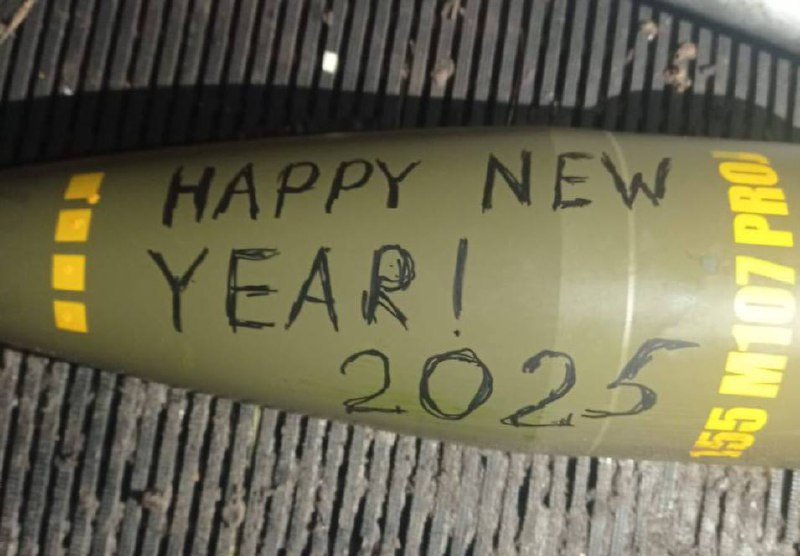 HAPPY NEW
YEAR!
2025
155 M107 PROJ